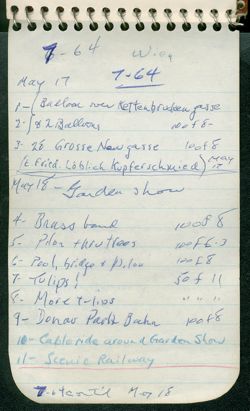 7-64 Wien
7-64
May 17
1- Balloon over Kettenbruckengasse
2- & 2 Balloons 100 of 8-
3- 28 Grosse Neugasse 100 of 8
(E. Fried. Löblich Kupferschmied) May 17
May 18 - Garden show
4- Brass band 100 of 8
5- Pilon thru trees 100 F 6.3
6- Pool, bridge & Pilon 100 F 8
7- Tulips! 50 f 11
8- More tulips " " 11
9- Donau Park Bahn 100 F 8
10- Cable ride around Garden Show
11- Scenic Railway
7- May 18